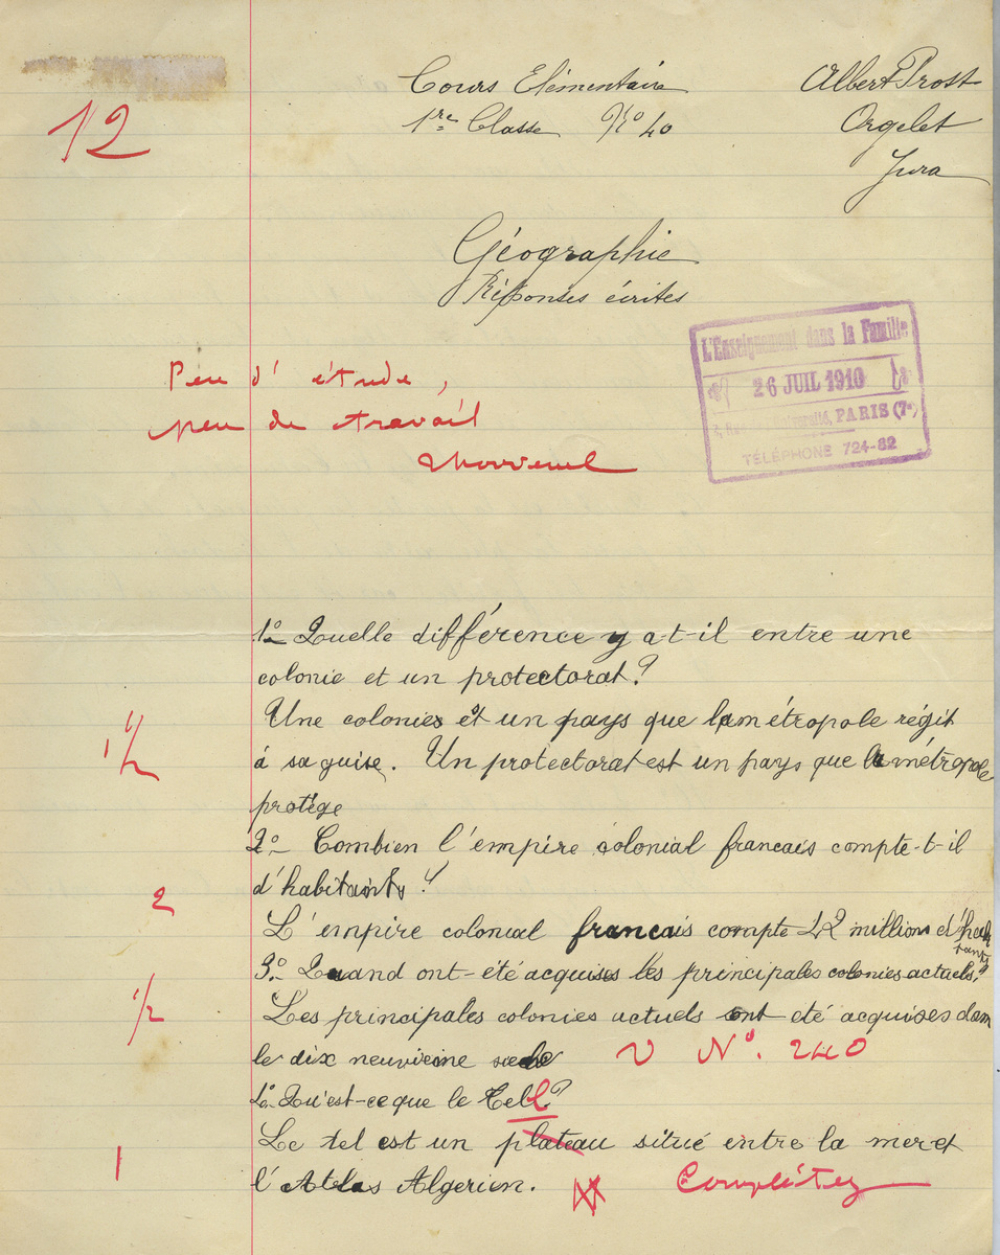 12
Cours Elémentaire
1re Classe No 40
Albert Prost
Orgelet
Jura
Géographie
Réponses écrites
L'Enseignement dans la Famille
26 JUIL 1910
PARIS (7e)
TÉLÉPHONE 724-82
Peu d'étude,
peu de travail
1o Quelle différence y a t-il entre une
colonie et un protectorat?
1 1/2
Une colonies et un pays que la métropole régit
à sa guise. Un protectorat est un pays que la métropole
protége
2o Combien l'empire colonial francais compte-t-il
d'habitants?
2
L'empire colonial francais compte 42 million d'habitants
3o Quand ont-été acquises les principales colonies actuels?
1/2
Les principales colonies actuels ont été acquises dans
le dix neuvieme siecle V No. 240
4o Qu'est-ce que le Tell?
Le tel est un plateau situé entre la mer et
1
l'Atlas Algerien. Complétez